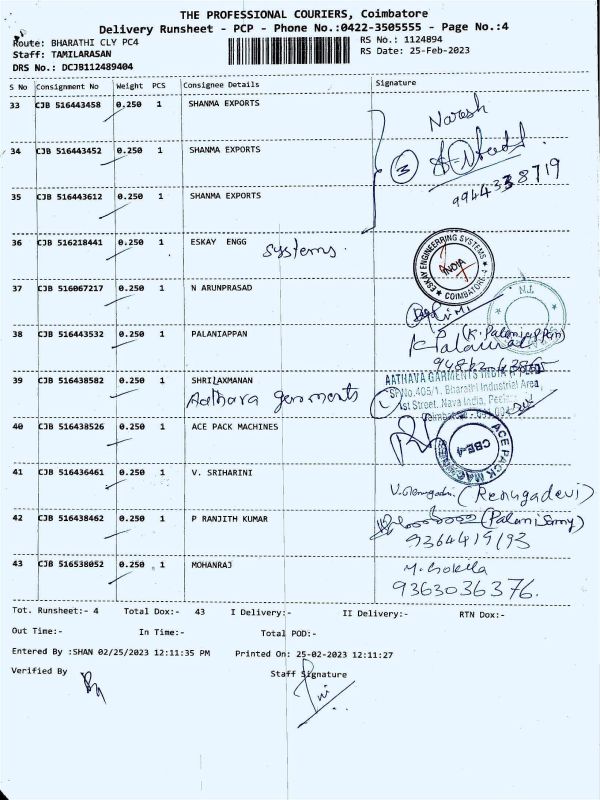 THE PROFESSIONAL COURIERS, Coimbatore
Delivery Runsheet - PCP - Phone No.:0422-3505555 - Page No.:4
Route: BHARATHI CLY PC4
RS No.: 1124894
Staff: TAMILARASAN
RS Date: 25-Feb-2023
DRS No.: DCJB112489404
S No Consignment No Weight PCS Consignee Details Signature
33 CJB 516443458 0.250 1 SHANMA EXPORTS
Naresh
34 CJB 516443452 0.250 1 SHANMA EXPORTS
3
9944338719
35 CJB 516443612 0.250 1 SHANMA EXPORTS
36 CJB 516218441 0.250 1 ESKAY ENGG systems.
ESKAY ENGINEERING SYSTEMS
INDIA
COIMBATORE-4
37 CJB 516067217 0.250 1 N ARUNPRASAD
38 CJB 516443532 0.250 1 PALANIAPPAN
(K. Palaniappan)
39 CJB 516438582 0.250 1 SHRILAXMANAN
Aathava garments
AATHAVA GARMENTS INDIA (P) LTD
SF.No.405/1, Bharathi Industrial Area,
1st Street, Nava India,
40 CJB 516438526 0.250 1 ACE PACK MACHINES
ACE PACK MACHINES
CBE-4
41 CJB 516436461 0.250 1 V. SRIHARINI
(Renugadevi)
42 CJB 516438462 0.250 1 P RANJITH KUMAR
(Palanisamy)
9364419193
43 CJB 516538052 0.250 1 MOHANRAJ
9363036376.
Tot. Runsheet:- 4 Total Dox:- 43 I Delivery:- II Delivery:- RTN Dox:-
Out Time:- In Time:- Total POD:-
Entered By :SHAN 02/25/2023 12:11:35 PM Printed On: 25-02-2023 12:11:27
Verified By Staff Signature